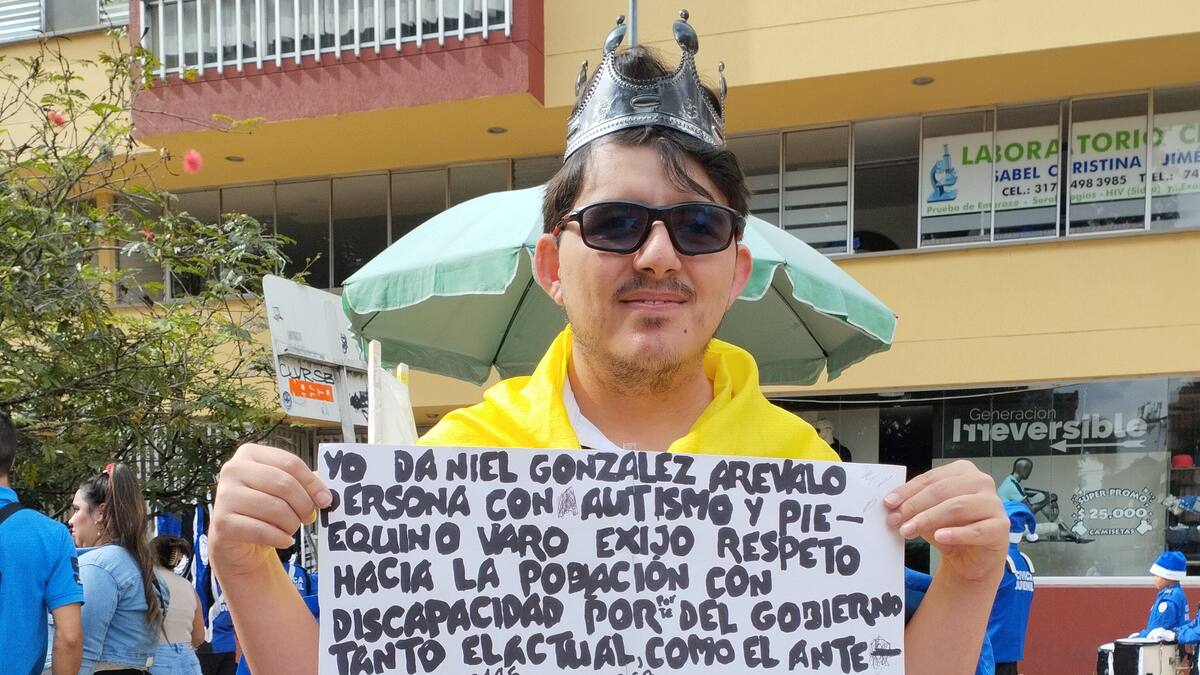 LABORATORIO
ISABEL CHRISTINA JIMÉ
CEL.: 317 498 3985 TEL.: 74
Prueba de Embarazo - Serologías - HIV (Sida)
CLVRSB
Generacion
Irreversible
SUPER PROMO
$ 25.000
CAMISETAS
YO DANIEL GONZALEZ AREVALO
PERSONA CON AUTISMO Y PIE-
EQUINO VARO EXIJO RESPETO
HACIA LA POBACIÓN CON
DISCAPACIDAD POR PARTE DEL GOBIERNO
TANTO EL ACTUAL, COMO EL ANTE-